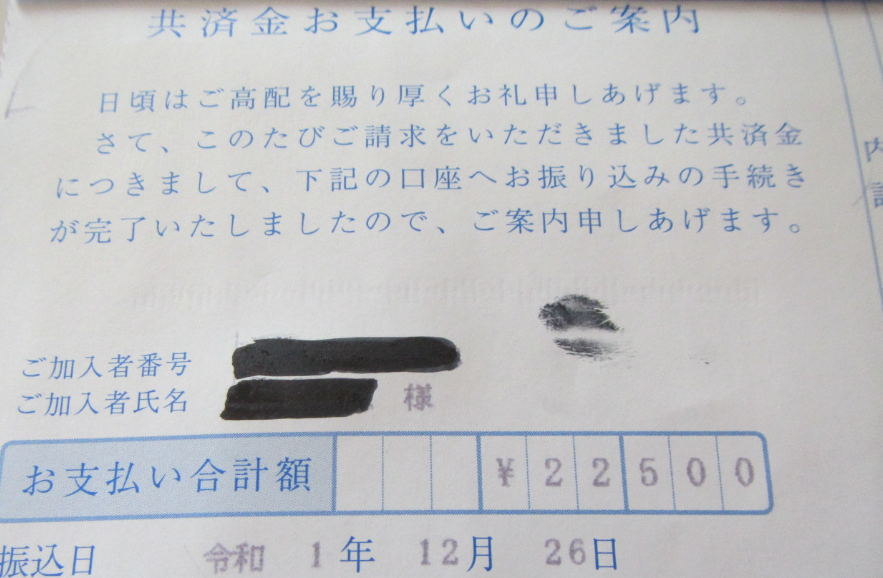 共済金お支払いのご案内
日頃はご高配を賜り厚くお礼申しあげます。
さて、このたびご請求をいただきました共済金
につきまして、下記の口座へお振り込みの手続き
が完了いたしましたので、ご案内申しあげます。
ご加入者番号
ご加入者氏名 様
お支払い合計額 ¥22500
振込日 令和 1年 12月 26日
内